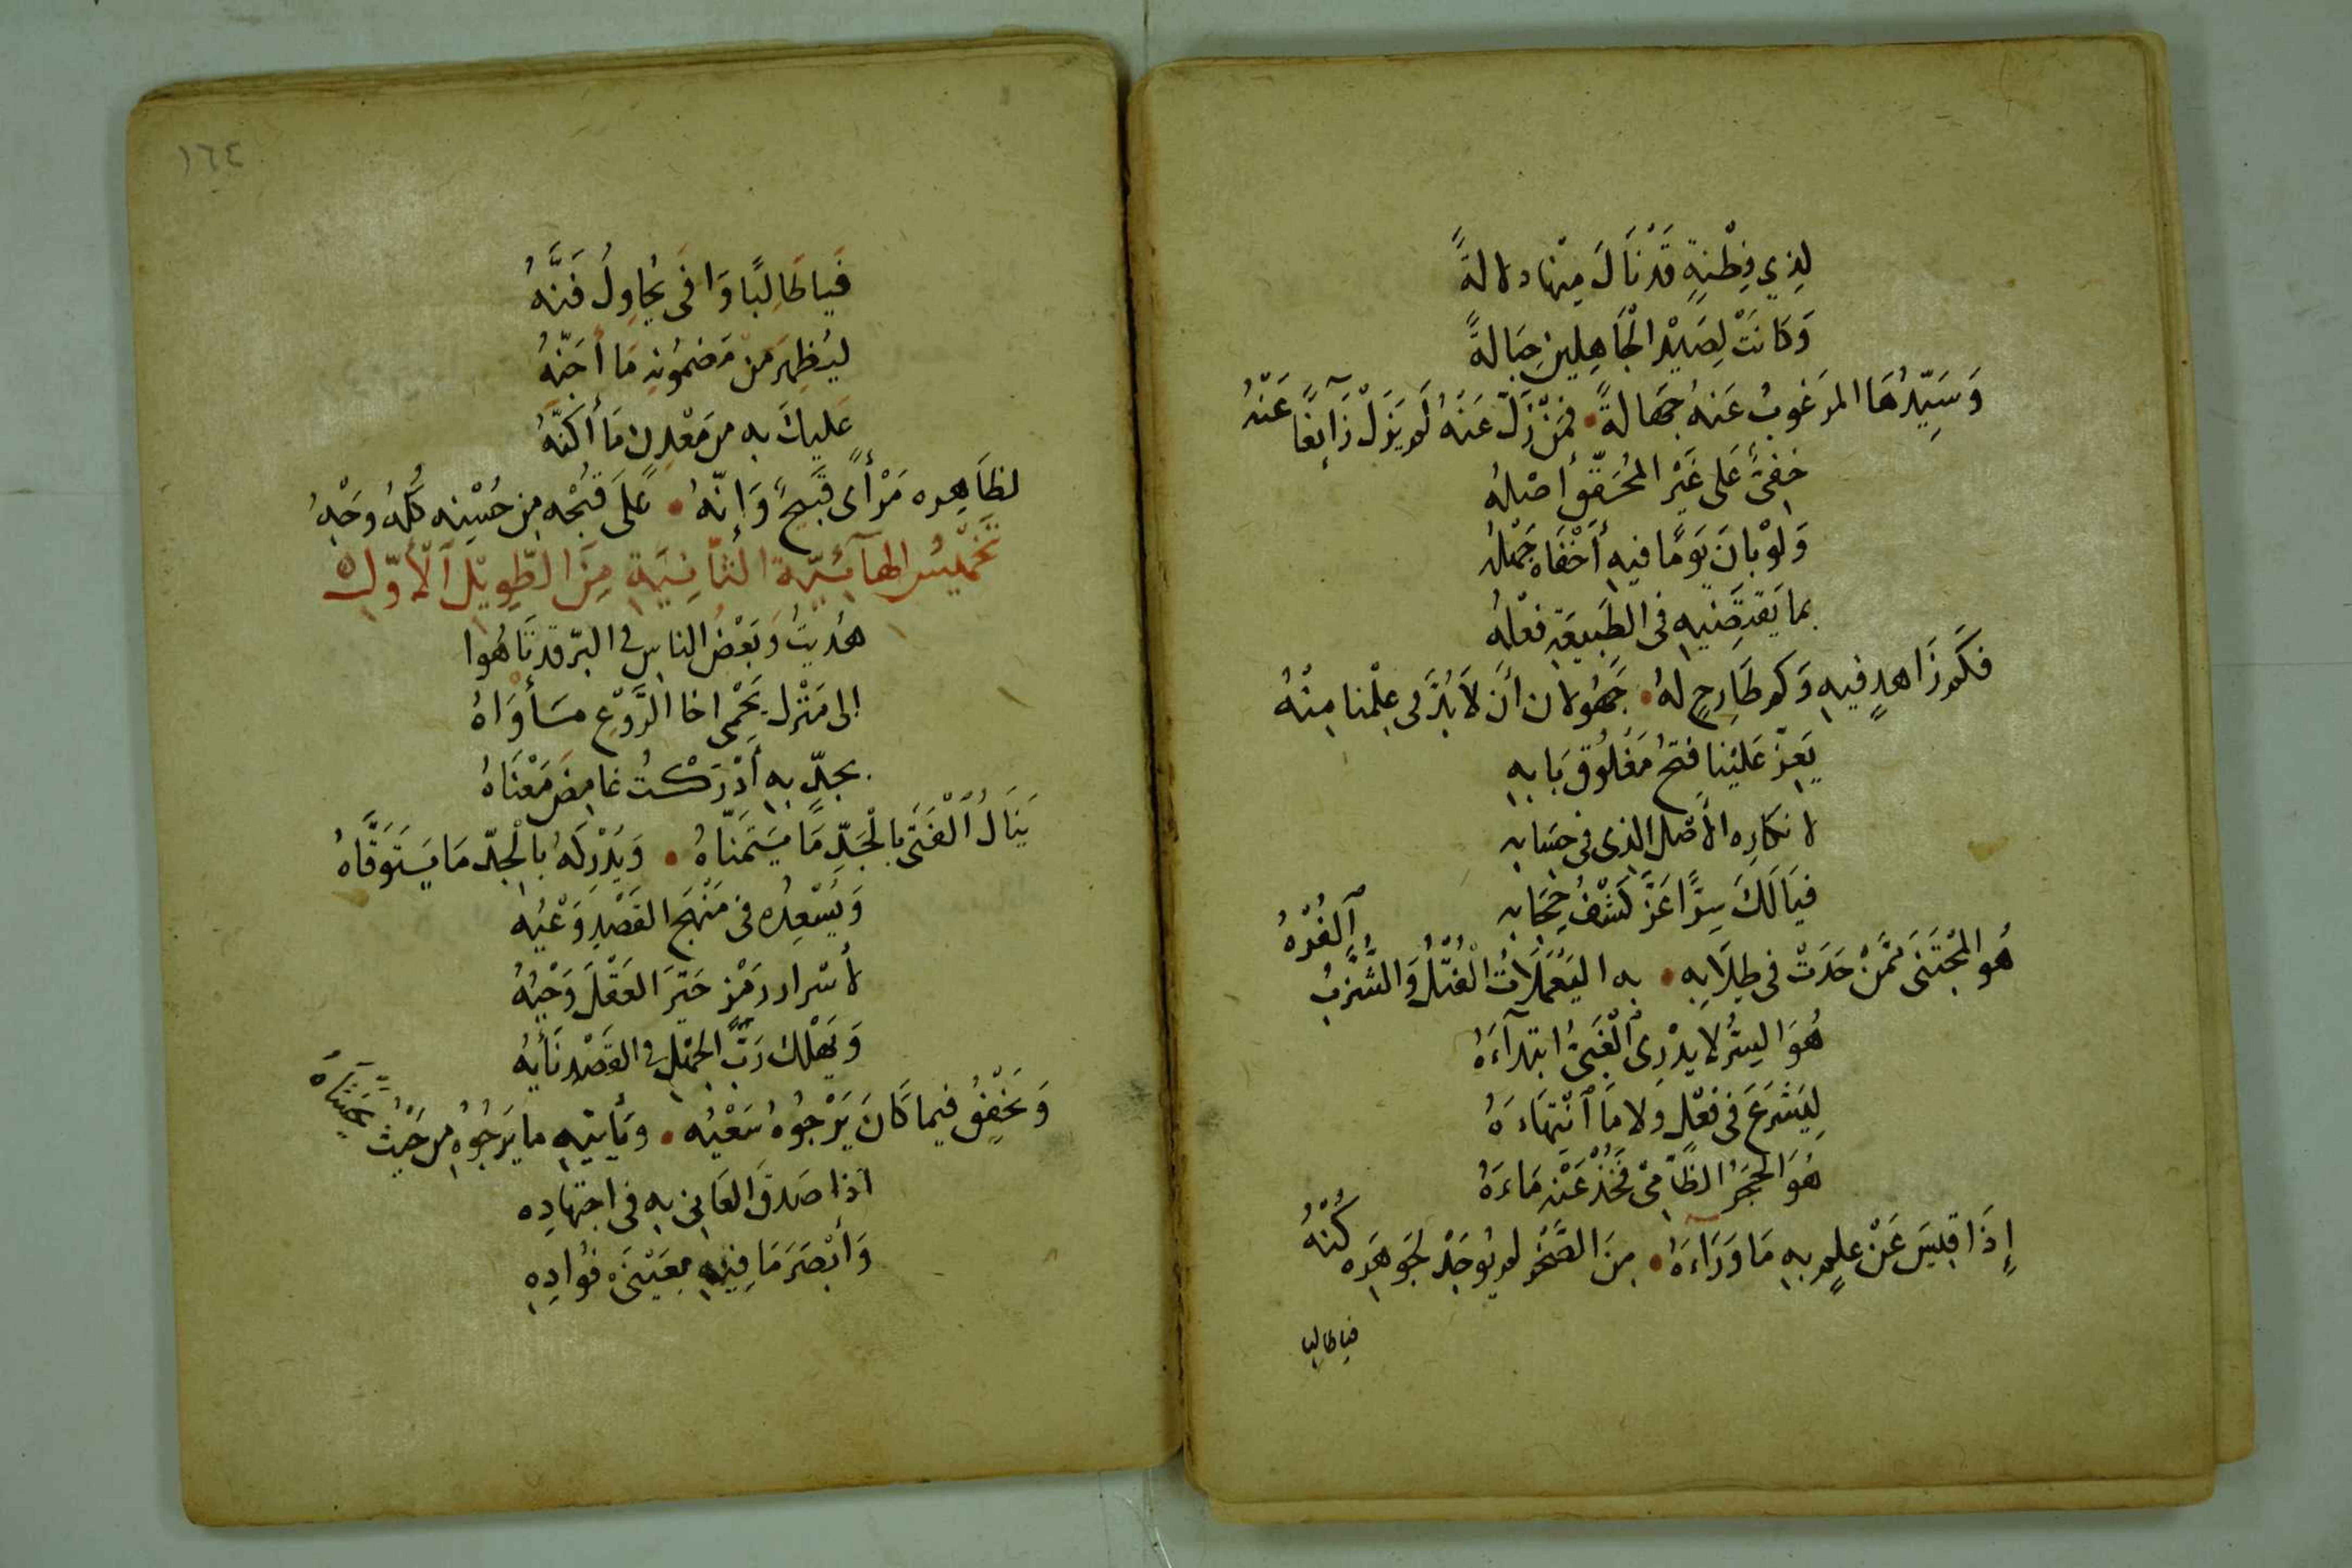 لِذِي فِطْنَةٍ قَدْ نَالَ مِنْهَا دلالةً
وَكَانَتْ لِصَيْدِ الْجَاهِلِينَ حِبَالةً
وَسَيِّرُهَا المَرغوبُ عَنهُ جَهالةً • فمَنْ زَلَّ عَنهُ لَم يَزَلْ زَآئِغًا عَنْهُ
خفِىٌّ عَلى غَيْرِ المُحَقِّقِ أصْلُهُ
وَلَوْ بانَ يَومًا فيهِ أخْفَاهُ جَهْلُهُ
بما يَقتَضِيهِ فى الطَبِيعَةِ فعْلُهُ
فكَم زَاهدٍ فيهِ وَكم طَارِحٍ لهُ • جَهُولان أن لَا بُدَّ فى عِلْمنا مِنْهُ
يَعِزّ عَلَيْنا فتحُ مَغْلُوقِ بَابِهِ
لانكارِه الأَصْلَ الذى فى حِسَابِهِ
فيَا لَكَ سِتْرًا عَزَّ كَشْفُ حِجَابِهِ
هُو المُجْتَنَى ممَّنْ حَدَتْ فى طِلَابِهِ • به اليَعْمَلَاتُ الْفُتْلُ وَالشُّزَّبُ اَلْفُرْهُ
هُوَ السِّرُّ لا يدْرِى الْغَبِىُّ ابتدآءَهُ
لِيَشْرَعَ فى فعْلٍ وَلا مَا ٱنْتِهَاءَهُ
هُوَ الحجَرُ الظَّامِى فَخُذْ عَنْهِ مَاءَهُ
إِذَا قِيسَ عَنْ علمٍ بهِ مَا وَرَآءَهُ • مِنَ الصَّخْرِ لم يُوجَدْ لجَوهَرِه كُنْهُ
فيا طالبا
١٦٤
فَيا طَالِبًا وَافَى يُحَاوِلُ فَنَّهُ
ليُظهِرَ منْ مَضمُونِهِ مَا أجَنّهُ
عَليكَ به من مَعْدِنٍ مَا أكَنَّهُ
لظَاهِره مَرْأًى قَبيحٌ وَإنّهُ • عَلَى قُبْحِه مِن حُسْنِه كُلُّهُ وَجْهُ
تَخْمِيسُ الهَآئِيّة الثَّانِيَةِ مِنَ الطَّوِيْلِ اَلْأَوّلِ
هُدِيتُ وَبَعْضُ الناسِ فى البَرّ قد تَاهُوا
إلى مَنْزلٍ يَحْمِى اخَا الرَّوْعِ مَأْوَاهُ
بجدٍّ بهِ أدْرَكْتُ غامِضَ مَعْنَاهُ
يَنَالُ ٱلْفَتَى بِالْجَدِّ مَا يَتَمَنّاهُ • وَيُدْرِكُهُ بالْجدّ مَا يَتَوَقَّاهُ
وَيُسْعِدُه فى مَنْهَجِ القَصْدِ وَعْيُهِ
لأسْرارِ رَمْزٍ حَيّرَ العَقْلَ وَحْيُهُ
وَيَهْلك رَبُّ الجهْلِ فى القَصْدِ نَأيُهُ
وَيُخْفِقُ فيما كَانَ يَرْجُوهُ سَعْيُهُ • ويَأتيهِ ما يَرجُوهُ من حَيْثُ يَخشَاهُ
اذا صَدقَ العَانِى بهِ فى اجتهادِه
وَأبْصَرَ مَا فِيهِ بِعَيْنَىْ فؤادِهِ